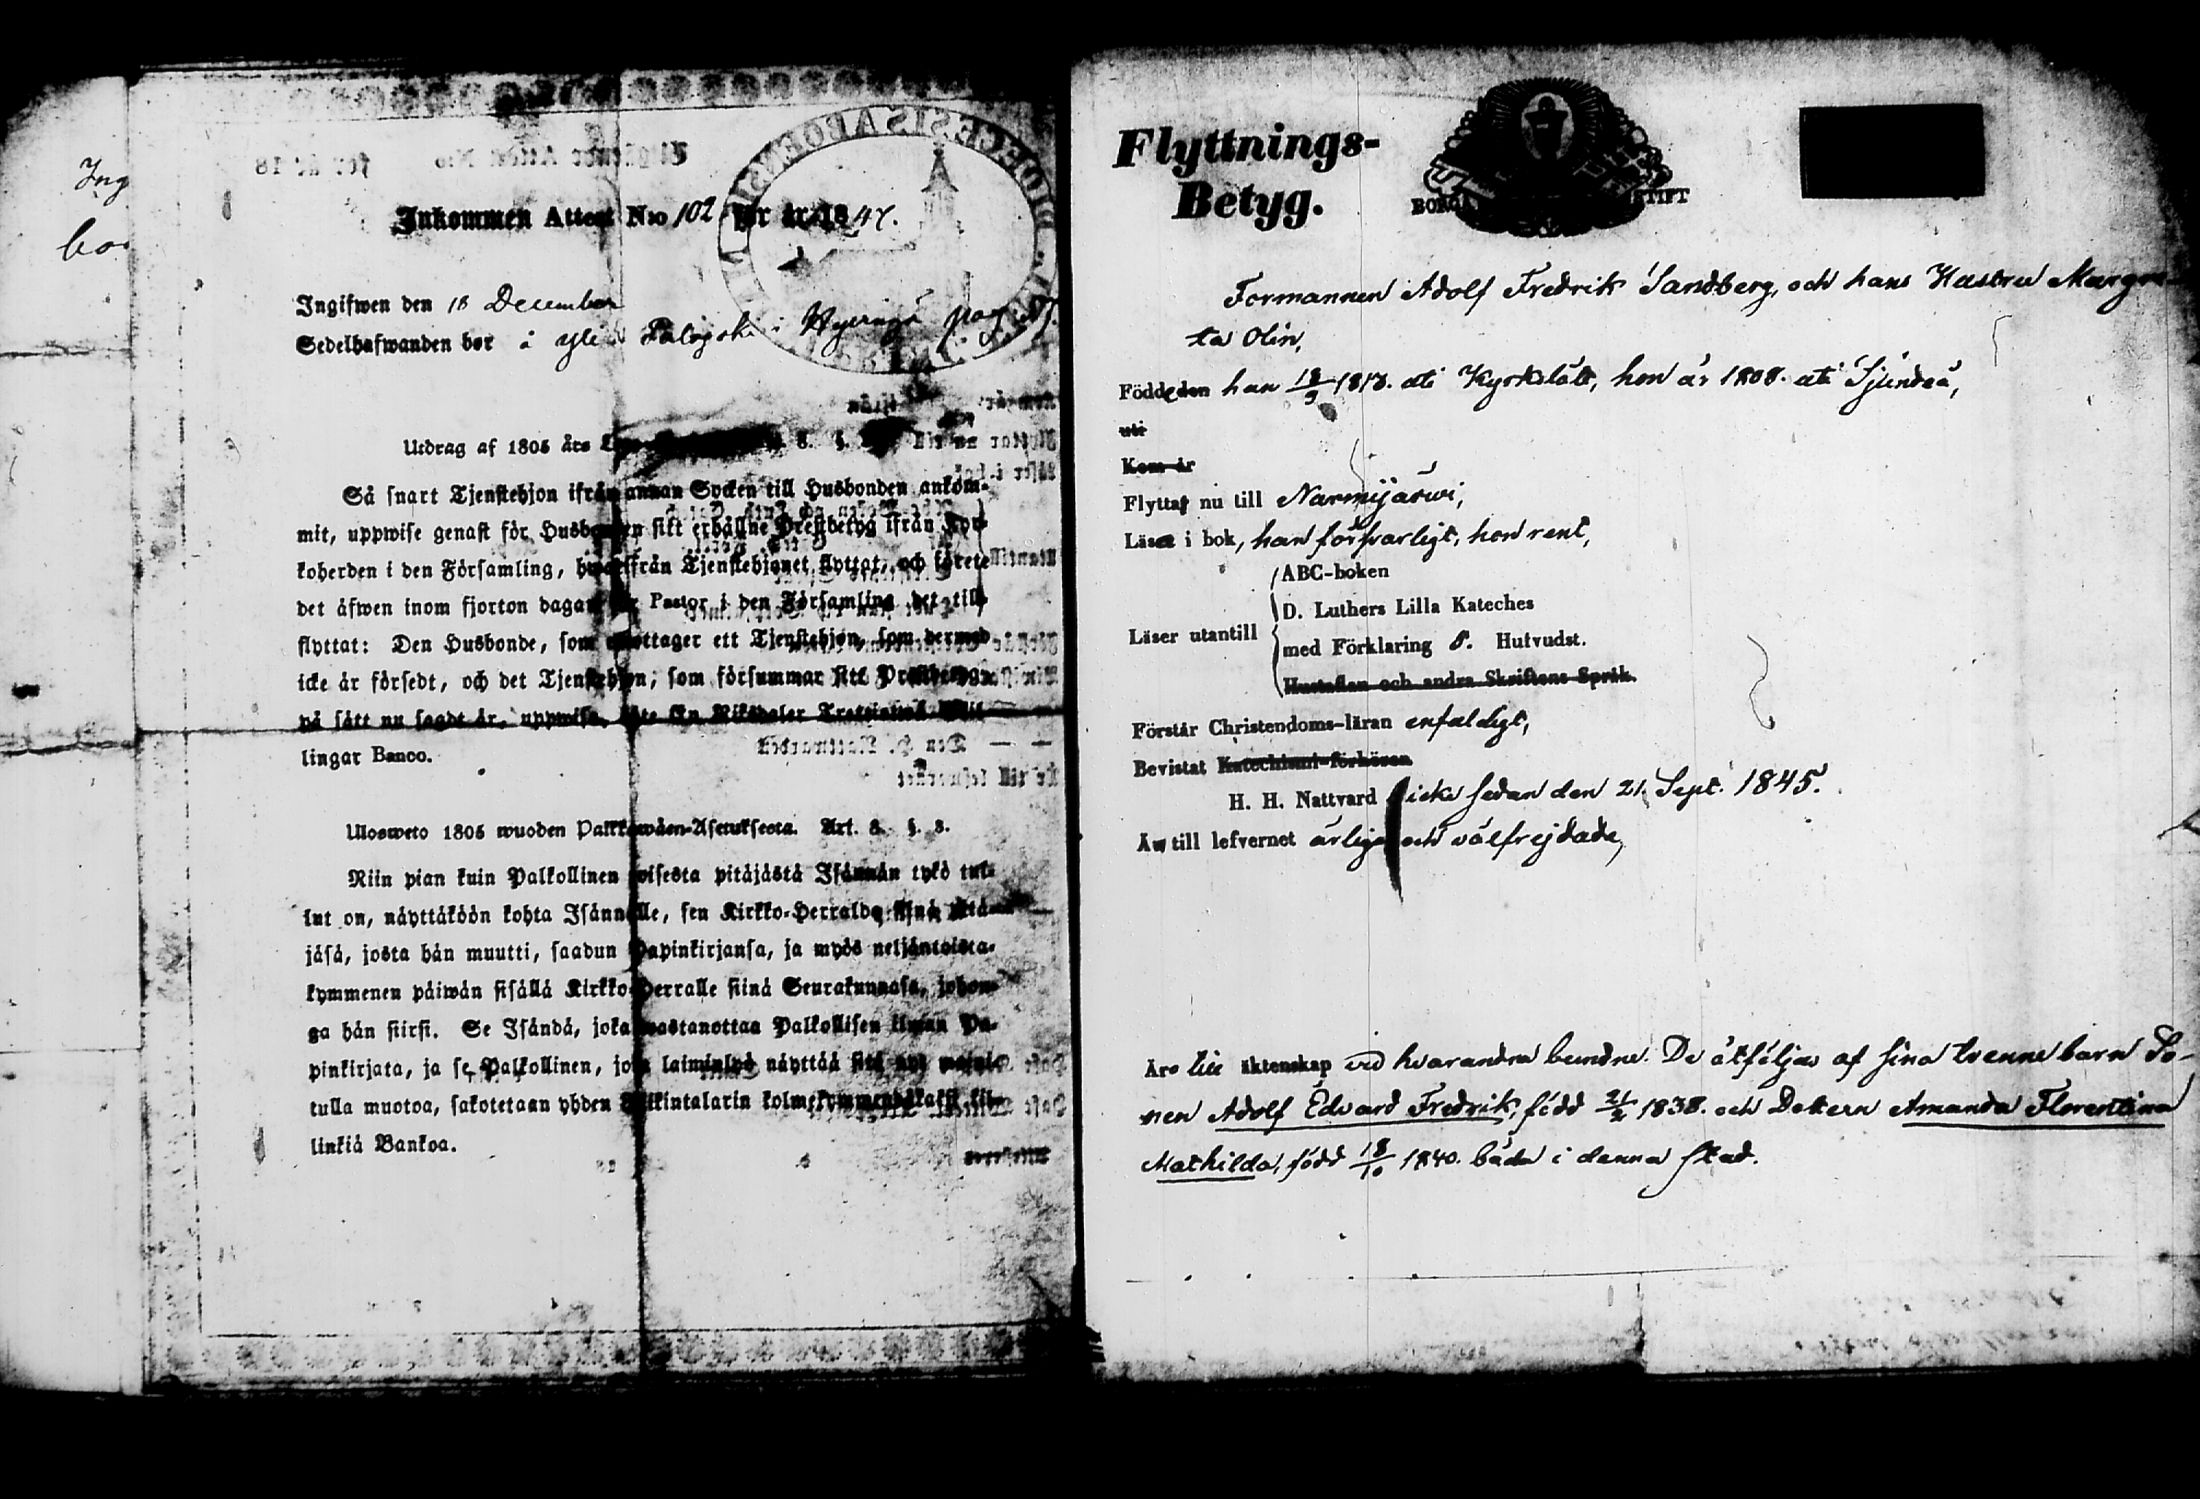 Ing
bor
Inkommen Attest N:o 102 för år 1847.
Ingifwen den 18 December
Sedelhafwanden bor i
Utdrag af 1805 års
Så snart Tjenstehjon ifrån annan Socken till Husbonden ankom-
mit, uppwise genast för Husbonden sitt erhållne Prestbetyg ifrån Kyr-
koherden i den Församling, hwarifrån Tjenstehjonet flyttat, och förete
det äfwen inom fjorton dagar för Pastor i den Församling det till-
flyttat: Den Husbonde, som emottager ett Tjenstehjon, som dermed
icke är försedt, och det Tjenstehjon, som försummar sitt Prestbetyg
på sätt nu sagdt är, uppwisa, böte En Riksdaler Trettiotwå Skil-
lingar Banco.
Ulosweto 1805 wuoden Palkkawäen-Asetuksesta. Art. 8. §. 3.
Niin pian kuin Palkollinen toisesta pitäjästä Isännän tykö tul-
lut on, näyttäköön kohta Isännälle, sen Kirkko-Herralda siinä pitä-
jäsä, josta hän muutti, saadun Papinkirjansa, ja myös neljäntoista-
kymmenen päiwän sisällä Kirkko-Herralle siinä Seurakunnasa, johon-
ga hän siirsi. Se Isändä, joka wastanottaa Palkollisen ilman Pa-
pinkirjata, ja se Palkollinen, joka laiminlyö näyttää sitä nyt mainit-
tulla muotoa, sakotetaan yhden Riikintalarin kolmekymmendäkaksi kil-
linkiä Bankoa.
Flyttnings-
Betyg.
BORGÅ STIFT
Formannen Adolf Fredrik Sandberg, och hans Hustru Margre-
ta Olin,
Född den han 18/9 1813. uti Kyrkslätt, hon år 1808. uti Sjundeå,
uti
Kom år
Flytta nu till Nurmijärwi,
Läsa i bok, han försvarligt, hon rent,
ABC-boken
D. Luthers Lilla Kateches
Läser utantill
med Förklaring 5. Hufvudst.
Hustaflan och andra Skriftens Språk.
Förstår Christendoms-läran enfaldigt,
Bevistat Katechismi-förhören
H. H. Nattvard icke sedan den 21. Sept. 1845.
Äro till lefvernet ärliga och välfrejdade,
Äro till äktenskap vid hvarandra bundne. De åtföljas af sina tvenne barn So-
nen Adolf Edvard Fredrik, född 21/2 1838. och Dottern Amanda Florentina
Mathilda, född 18/10 1840. båda i denna stad.